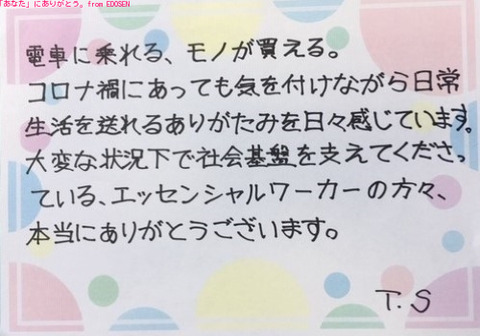 「あなた」にありがとう。from EDOSEN
電車に乗れる、モノが買える。
コロナ禍にあっても気を付けながら日常
生活を送れるありがたみを日々感じています。
大変な状況下で社会基盤を支えてくださっ
ている、エッセンシャルワーカーの方々、
本当にありがとうございます。
T.S